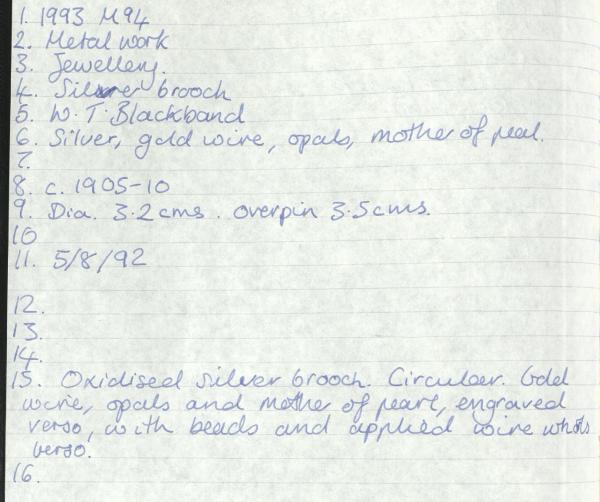 1. 1993 M94
2. Metal work
3. Jewellery.
4. Silver brooch
5. W. T. Blackband
6. Silver, gold wire, opals, mother of pearl.
7.
8. c. 1905-10
9. Dia. 3.2cms. overpin 3.5cms.
10
11. 5/8/92
12.
13.
14.
15. Oxidised silver brooch. Circular. Gold
wire, opals and mother of pearl, engraved
verso, with beads and applied wire whorls
verso.
16.